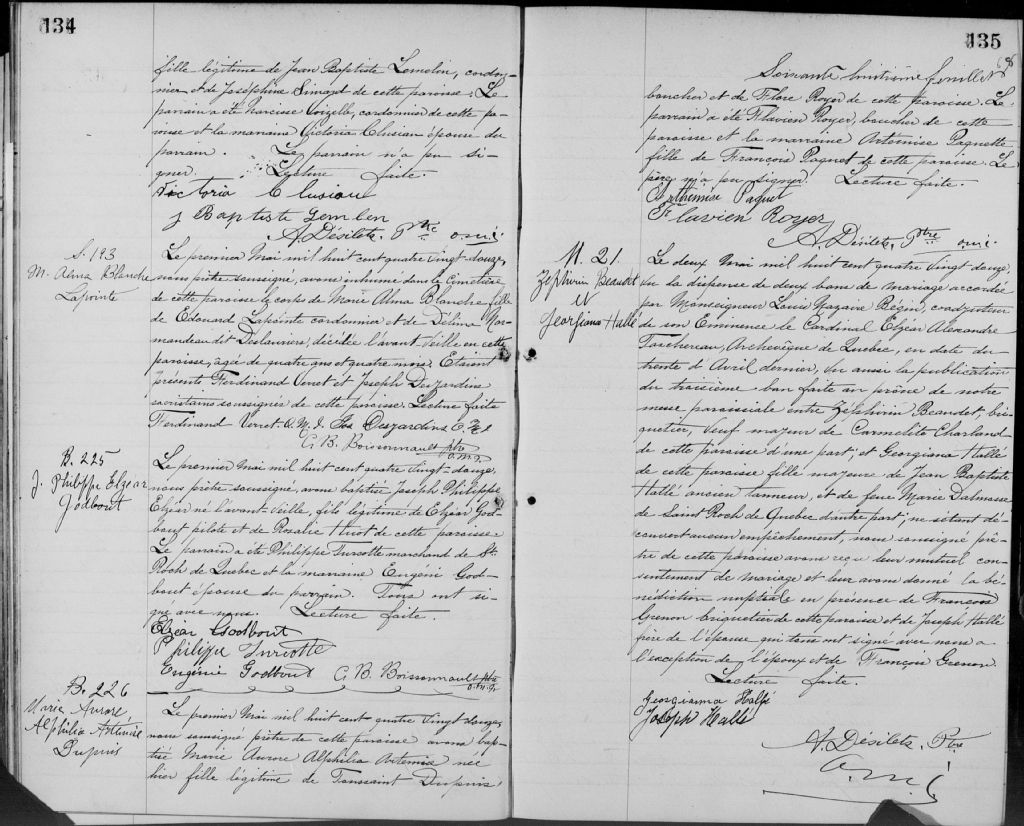 134
fille légitime de Jean Baptiste Lemelin, cordon-
nier et de Joséphine Simard de cette paroisse. Le
parrain a été Narcisse cordonnier de cette pa-
roisse et la marraine Victoria Clusiau épouse du
parrain. Le parrain n'a pu si-
gner. Lecture faite.
Victoria Clusiau
J Baptiste Lemlen
A. Désilets, Ptre o.m.i.
S. 193
M. Alma Blanche
Lapointe
Le premier Mai mil huit cent quatre vingt-douze,
nous prêtre soussigné, avons inhumé dans le Cimetière
de cette paroisse le corps de Marie Alma Blanche fille
de Edouard Lapointe cordonnier et de Délima Nor-
mandeau dit Deslauriers, décédée l'avant veille en cette
paroisse, âgée de quatre ans et quatre mois. Etaient
présents Ferdinand Verret et Joseph Desjardins
sacristains soussignés de cette paroisse. Lecture faite
Ferdinand Verret O.M.I. Jos Desjardins
C. B. Boissonnault ptre
o.m.i.
B. 225
J. Philippe Elzear
Godbout
Le premier Mai mil huit cent quatre vingt-douze,
nous prêtre soussigné, avons baptisé Joseph Philippe
Elzéar né l'avant-veille, fils légitime de Elzéar God-
bout pilote et de Rosalie Huot de cette paroisse.
Le parrain a été Philippe Turcotte marchand de St
Roch de Quebec et la marraine Eugénie God-
bout épouse du parrain. Tous ont si-
gné avec nous. Lecture faite.
Elzéar Godbout
Philippe Turcotte
Eugénie Godbout C. B. Boissonnault ptre
o.m.i.
B. 226
Marie Aurore
Alphilia Artémise
Dupuis
Le premier Mai mil huit cent quatre vingt douze,
nous soussigné prêtre de cette paroisse avons bap-
tisé Marie Aurore Alphilia Artemise née
hier fille légitime de Toussaint Dupuis,
135
68
Soixante huitième feuillet
boucher et de Flore Royer de cette paroisse. Le
parrain a été Flavien Royer, boucher de cette
paroisse et la marraine Artemise Paquette
fille de François Paquet de cette paroisse. Le
père n'a pu signer. Lecture faite.
Arthémise Paquet
Flavien Royer
A. Désilets, Ptre o.m.i.
M. 21.
Zéphirin Beaudet
et
Georgiana Hallé
Le deux Mai mil huit cent quatre vingt douze,
vu la dispense de deux bans de mariage accordée
par Monseigneur Louis Nazaire Bégin, coadjuteur
de son Eminence le Cardinal Elzéar Alexandre
Taschereau, Archevêque de Quebec, en date du
trente d'Avril dernier, vu aussi la publication
du troisième ban faite au prône de notre
messe paroissiale entre Zéphirin Beaudet, bri-
quetier, veuf majeur de Carmelite Charland
de cette paroisse d'une part; et Georgiana Hallé
de cette paroisse fille majeure de Jean Baptiste
Hallé ancien tanneur, et de feue Marie Dalmasse
de Saint Roch de Quebec d'autre part; ne s'étant dé-
couvert aucun empêchement, nous soussigné prê-
tre de cette paroisse avons reçu leur mutuel con-
sentement de mariage et leur avons donné la bé-
nédiction nuptiale en présence de François
Grenon briquetier de cette paroisse et de Joseph Hallé
frère de l'épouse qui tous ont signé avec nous à
l'exception de l'époux et de François Grenon.
Lecture faite.
Georgianna Hallé
Joseph Hallé
A. Désilets, Ptre
o.m.i.